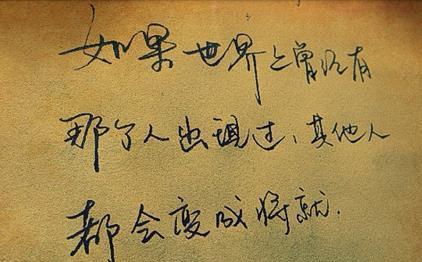 如果世界上曾经有
那个人出现过，其他人
都会变成将就.